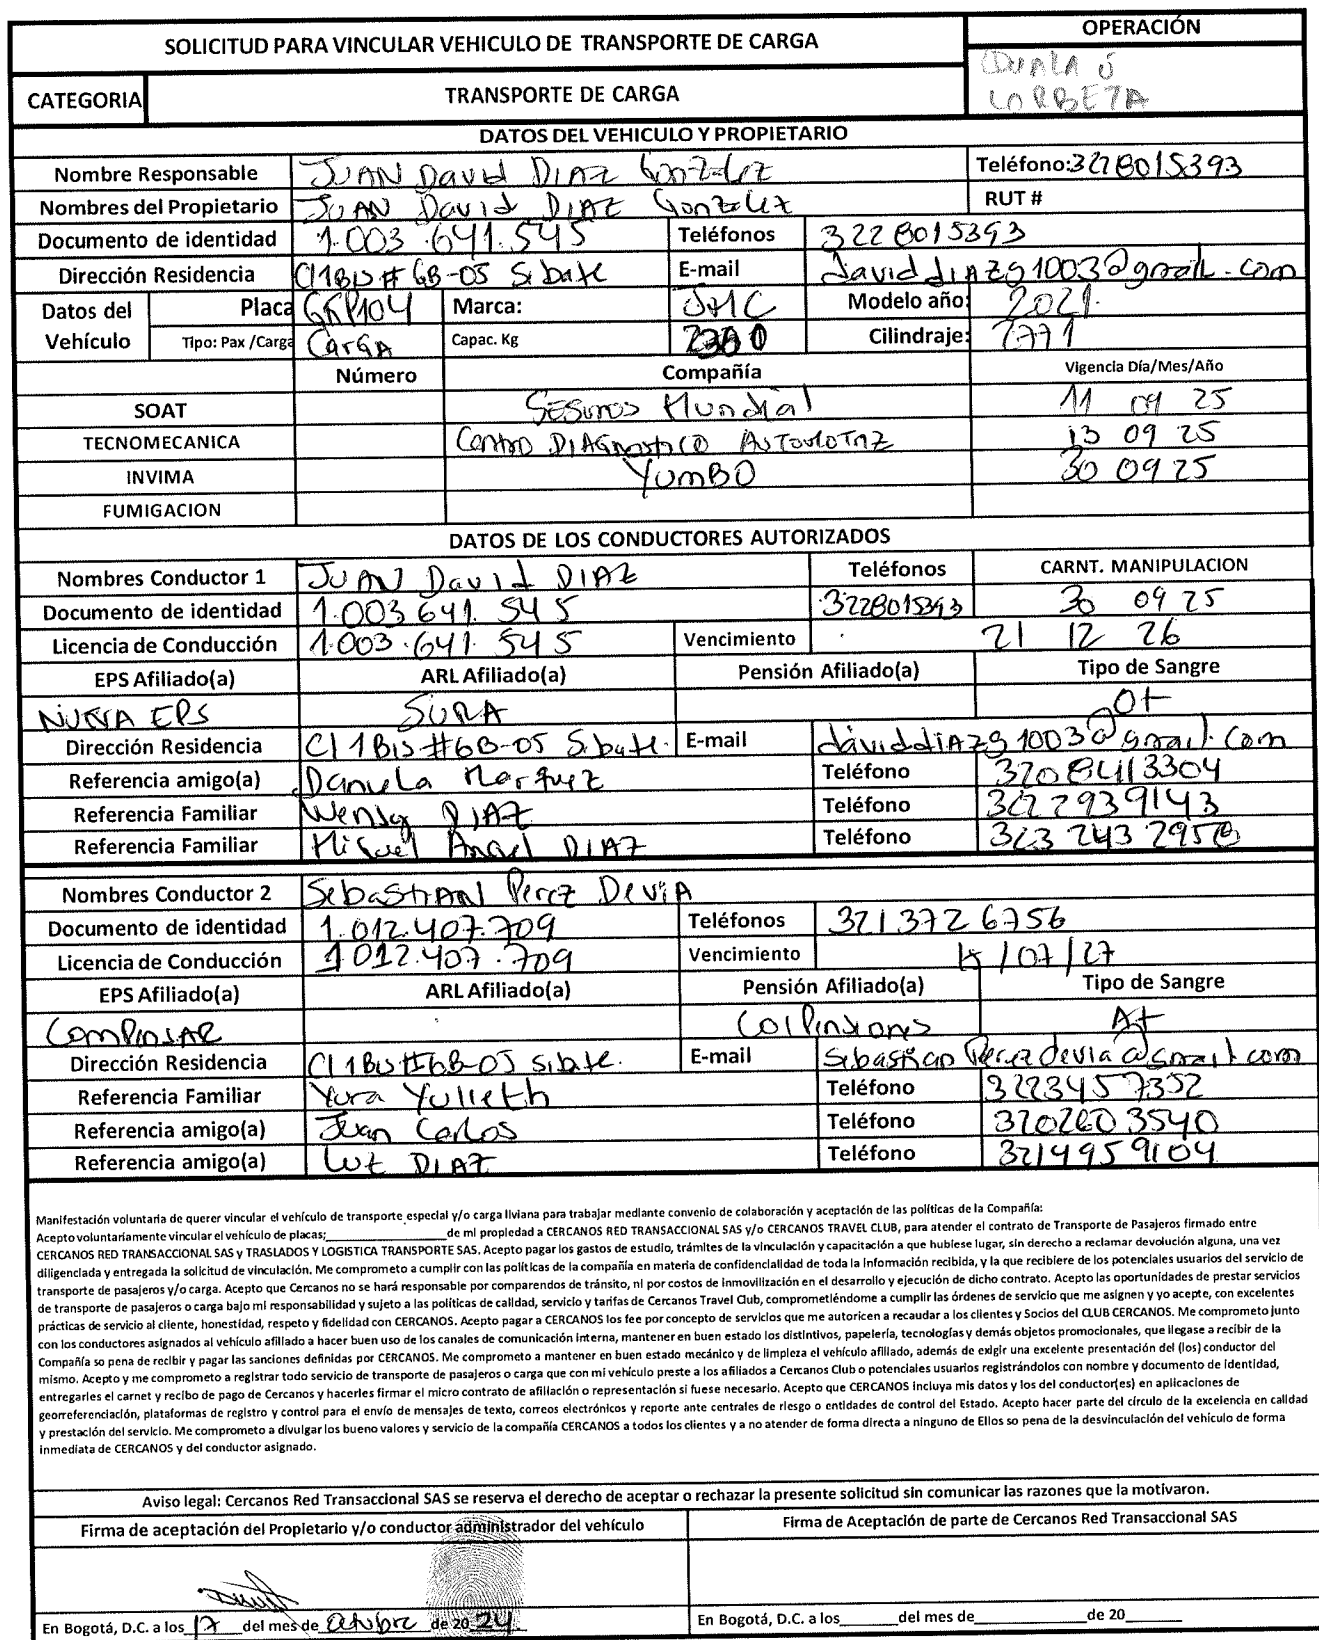 SOLICITUD PARA VINCULAR VEHICULO DE TRANSPORTE DE CARGA
OPERACIÓN
CORBETA
CATEGORIA TRANSPORTE DE CARGA
DATOS DEL VEHICULO Y PROPIETARIO
Nombre Responsable JUAN David DIAZ Gonzalez Teléfono:3228015393
Nombres del Propietario JUAN David DIAZ Gonzalez RUT #
Documento de identidad 1.003.641.545 Teléfonos 3228015393
Dirección Residencia Cl 1BIS # 6B-05 Sibate E-mail daviddiazg1003@gmail.com
Datos del Vehículo Placa GRP104 Marca: JMC Modelo año: 2021
Tipo: Pax /Carga CARGA Capac. Kg Cilindraje: 2771
Número Compañía Vigencia Día/Mes/Año
SOAT Seguros Mundial 11 09 25
TECNOMECANICA Centro DIAGnostico AUTOMOTRIZ 13 09 25
INVIMA YUMBO 30 09 25
FUMIGACION
DATOS DE LOS CONDUCTORES AUTORIZADOS
Nombres Conductor 1 JUAN David DIAZ Teléfonos CARNT. MANIPULACION
Documento de identidad 1.003.641.545 3228015393 30 09 25
Licencia de Conducción 1.003.641.545 Vencimiento 21 12 26
EPS Afiliado(a) ARL Afiliado(a) Pensión Afiliado(a) Tipo de Sangre
NUEVA EPS SURA O+
Dirección Residencia Cl 1BIS #6B-05 Sibate. E-mail daviddiazg1003@gmail.com
Referencia amigo(a) Daniela Marquez Teléfono 3208413304
Referencia Familiar Wendy DIAZ Teléfono 3222939143
Referencia Familiar Miguel Angel DIAZ Teléfono 323 243 2950
Nombres Conductor 2 Sebastian Perez Devia
Documento de identidad 1.012.407.709 Teléfonos 3213726756
Licencia de Conducción 1012.407.709 Vencimiento /07/27
EPS Afiliado(a) ARL Afiliado(a) Pensión Afiliado(a) Tipo de Sangre
Compensar Colpensiones A+
Dirección Residencia Cl 1Bis #6B-05 sibate. E-mail sebastianperezdevia@gmail.com
Referencia Familiar Yura Yulieth Teléfono 3223457352
Referencia amigo(a) Juan Carlos Teléfono 3202603540
Referencia amigo(a) Luz DIAZ Teléfono 3214959104
Manifestación voluntaria de querer vincular el vehículo de transporte especial y/o carga liviana para trabajar mediante convenio de colaboración y aceptación de las políticas de la Compañía:
Acepto voluntariamente vincular el vehículo de placas;____________________de mi propiedad a CERCANOS RED TRANSACCIONAL SAS y/o CERCANOS TRAVEL CLUB, para atender el contrato de Transporte de Pasajeros firmado entre
CERCANOS RED TRANSACCIONAL SAS y TRASLADOS Y LOGISTICA TRANSPORTE SAS. Acepto pagar los gastos de estudio, trámites de la vinculación y capacitación a que hubiese lugar, sin derecho a reclamar devolución alguna, una vez
diligenciada y entregada la solicitud de vinculación. Me comprometo a cumplir con las políticas de la compañía en materia de confidencialidad de toda la información recibida, y la que recibiere de los potenciales usuarios del servicio de
transporte de pasajeros y/o carga. Acepto que Cercanos no se hará responsable por comparendos de tránsito, ni por costos de inmovilización en el desarrollo y ejecución de dicho contrato. Acepto las oportunidades de prestar servicios
de transporte de pasajeros o carga bajo mi responsabilidad y sujeto a las políticas de calidad, servicio y tarifas de Cercanos Travel Club, comprometiéndome a cumplir las órdenes de servicio que me asignen y yo acepte, con excelentes
prácticas de servicio al cliente, honestidad, respeto y fidelidad con CERCANOS. Acepto pagar a CERCANOS los fee por concepto de servicios que me autoricen a recaudar a los clientes y Socios del CLUB CERCANOS. Me comprometo junto
con los conductores asignados al vehículo afiliado a hacer buen uso de los canales de comunicación interna, mantener en buen estado los distintivos, papelería, tecnologías y demás objetos promocionales, que llegase a recibir de la
Compañía so pena de recibir y pagar las sanciones definidas por CERCANOS. Me comprometo a mantener en buen estado mecánico y de limpieza el vehículo afiliado, además de exigir una excelente presentación del (los) conductor del
mismo. Acepto y me comprometo a registrar todo servicio de transporte de pasajeros o carga que con mi vehículo preste a los afiliados a Cercanos Club o potenciales usuarios registrándolos con nombre y documento de identidad,
entregarles el carnet y recibo de pago de Cercanos y hacerles firmar el micro contrato de afiliación o representación si fuese necesario. Acepto que CERCANOS incluya mis datos y los del conductor(es) en aplicaciones de
georreferenciación, plataformas de registro y control para el envío de mensajes de texto, correos electrónicos y reporte ante centrales de riesgo o entidades de control del Estado. Acepto hacer parte del círculo de la excelencia en calidad
y prestación del servicio. Me comprometo a divulgar los bueno valores y servicio de la compañía CERCANOS a todos los clientes y a no atender de forma directa a ninguno de Ellos so pena de la desvinculación del vehículo de forma
inmediata de CERCANOS y del conductor asignado.
Aviso legal: Cercanos Red Transaccional SAS se reserva el derecho de aceptar o rechazar la presente solicitud sin comunicar las razones que la motivaron.
Firma de aceptación del Propietario y/o conductor administrador del vehículo Firma de Aceptación de parte de Cercanos Red Transaccional SAS
En Bogotá, D.C. a los 17 del mes de Octubre de 20 24 En Bogotá, D.C. a los_______del mes de______________de 20_______